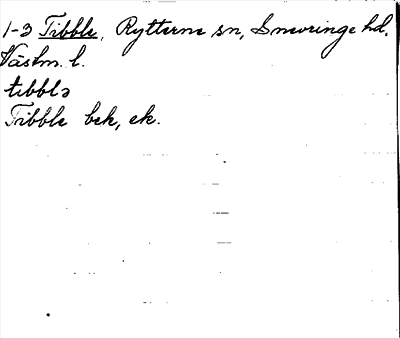 1-3 Tibble, Rytterne sn, Snevringe hd.
Västm. l.
tıbblə
Tibble bek, ek.